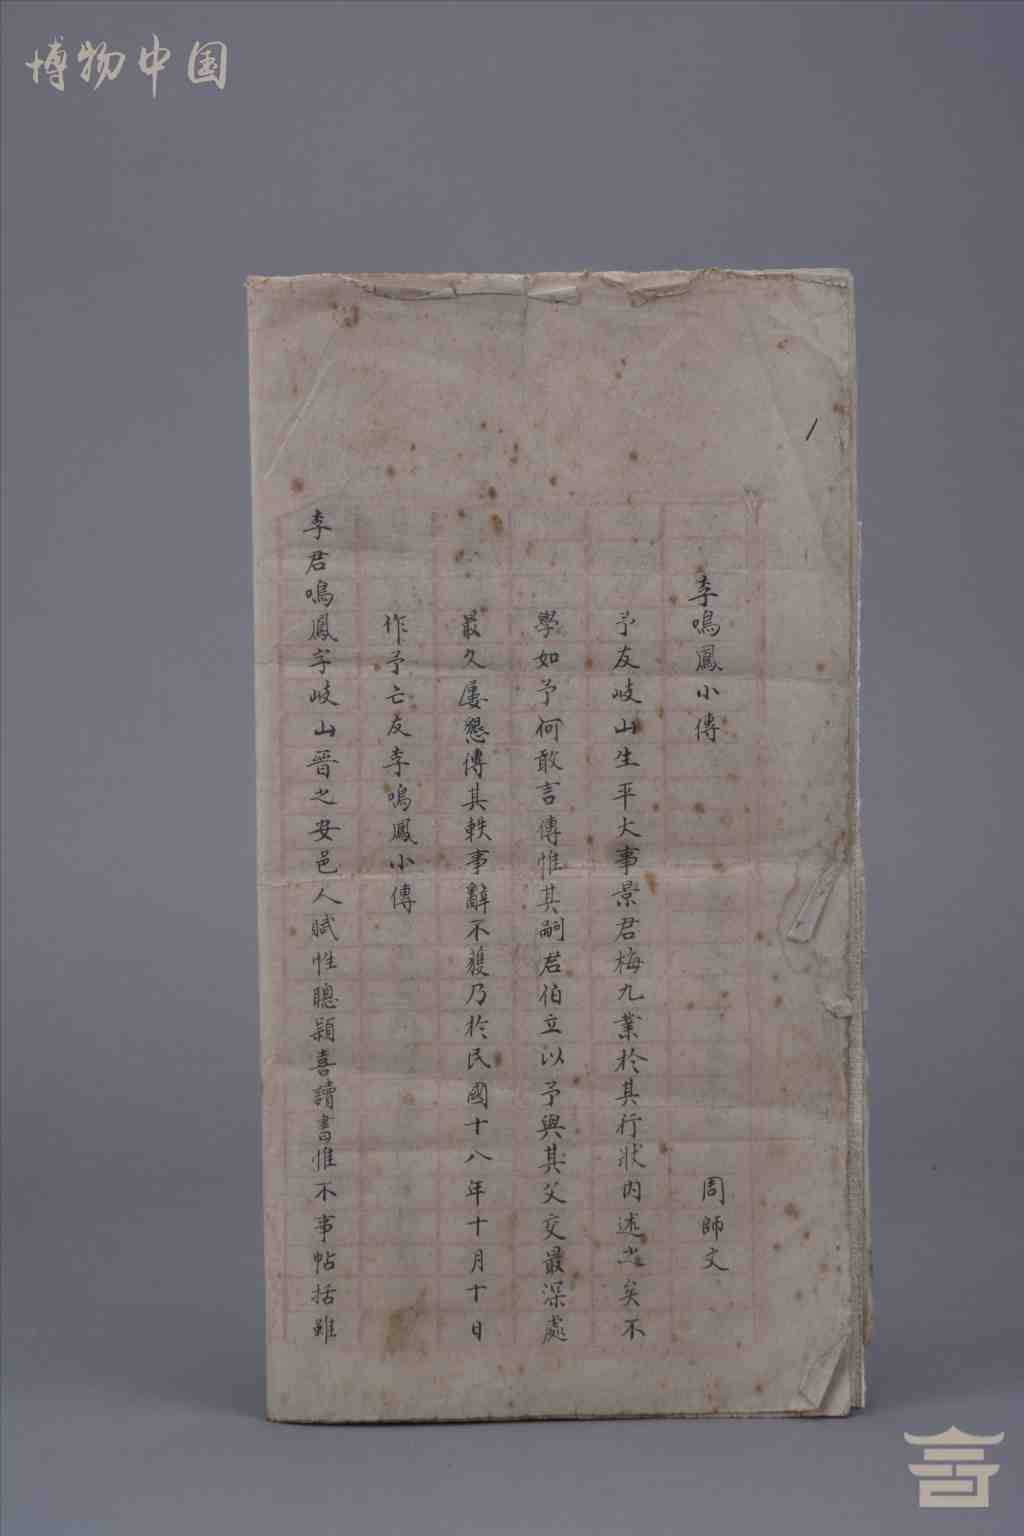 博物中国
1
李鳴鳳小傳
周師文
予友岐山生平大事景君梅九業於其行狀內述之矣不
學如予何敢言傳惟其嗣君伯立以予與其父交最深處
最久屢懇傳其軼事辭不獲乃於民國十八年十月十日
作予亡友李鳴鳳小傳
李君鳴鳳字岐山晉之安邑人賦性聰穎喜讀書惟不事帖括雖